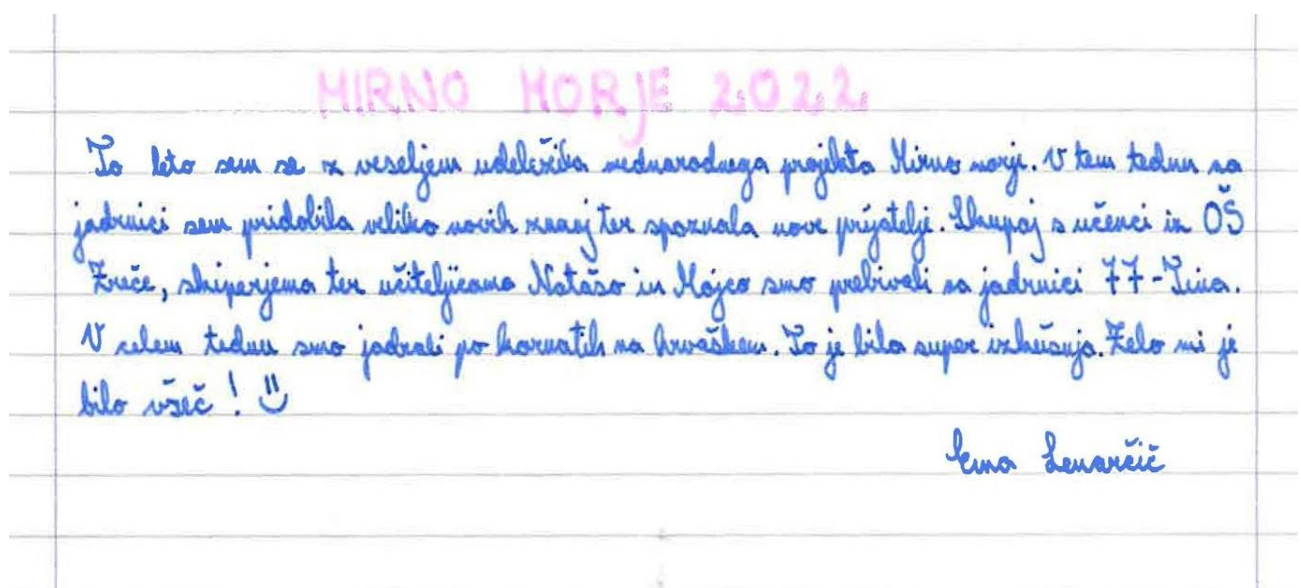 MIRNO MORJE 2022
To leto sem se z veseljem udeležila mednarodnega projekta Mirno morje. V tem tednu na
jadrnici sem pridobila veliko novih znanj ter spoznala nove prijatelje. Skupaj s učenci iz OŠ
Zreče, skiperjema ter učiteljicama Natašo in Mojco smo prebivali na jadrnici 77-Tina.
V celem tednu smo jadrali po kornatih na hrvaškem. To je bila super izkušnja. Zelo mi je
bilo všeč! :)
Ema Lenarčič